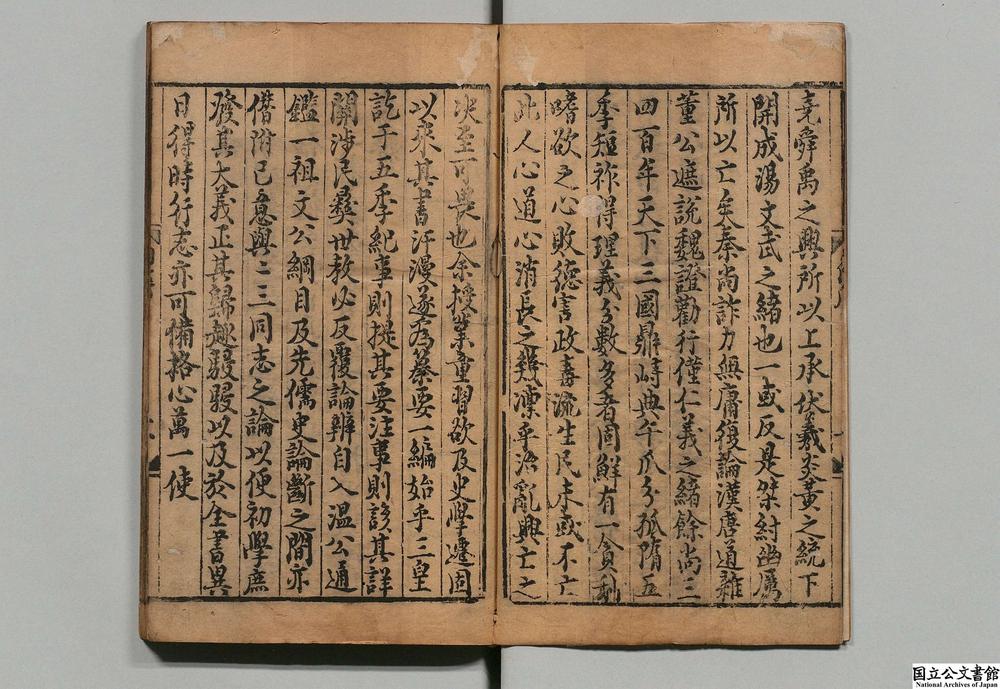 堯舜禹之興所以上承伏羲炎黃之統下
開成湯文武之緒也一或反是桀紂幽厲
所以亡矣秦尚詐力無庸復論漢唐道雜
董公遮說魏證勸行僅仁義之緒餘尚三
四百年天下三國鼎峙典午瓜分孤隋五
季短祚得理義分數多者固鮮有一貪利
嗜欲之心敗德害政毒流生民未或不亡
此人心道心消長之幾凜乎治亂興亡之
決至可畏也余授業童習欲及史學遷固
以來其書汗漫遂為纂要一編始乎三皇
訖于五季紀事則提其要注事則詳其詳
關涉民彝世教必反覆論辨自入溫公通
鑑一祖文公綱目及先儒史論斷之間亦
僭附已意與二三同志之論以便初學庶
發其大義正其歸趣駸駸以及於全書異
日得時行志亦可備格心萬一使
国立公文書館
National Archives of Japan